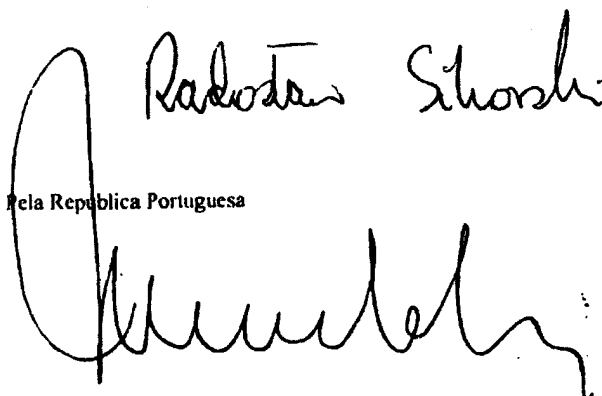 Radosław Sikorski
Pela República Portuguesa